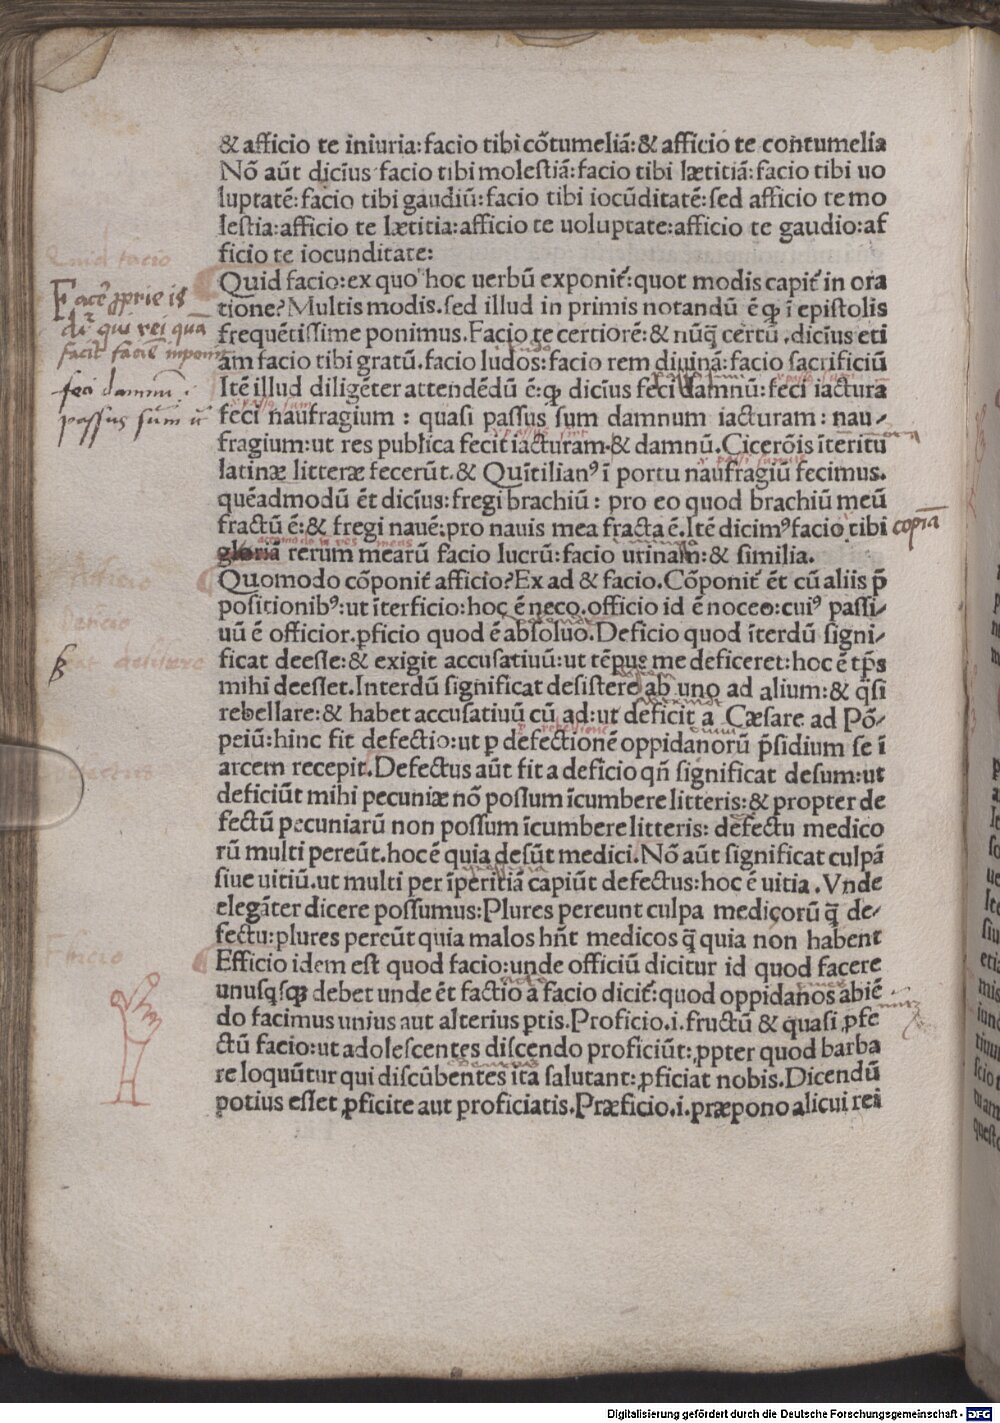 & afficio te iniuria:facio tibi cõtumeliã:& afficio te contumelia
Nõ aũt dicĩus facio tibi molestiã:facio tibi lætitiã:facio tibi uo
luptatẽ:facio tibi gaudiũ:facio tibi iocũditatẽ:sed afficio te mo
lestia:afficio te lætitia:afficio te uoluptate:afficio te gaudio:af
ficio te iocunditate:
Quid facio
Quid facio:ex quo hoc uerbũ exponit̃:quot modis capit̃ in ora
tione? Multis modis.sed illud in primis notandũ ẽ ꝙ ĩ epistolis
frequẽtissime ponimus.Facio te certiorẽ:& nũq̃ certũ.dicĩus eti
am facio tibi gratũ.facio ludos:facio rem diuinã:facio sacrificiũ
Itẽ illud diligẽter attendẽdũ ẽ:ꝙ dicĩus feci damnũ:feci iacturã
feci naufragium : quasi passus sum damnum iacturam: nau⸗
fragium:ut res publica fecit iacturam.& damnũ.Cicerõis ĩteritu
latinæ litteræ fecerũt.& Quĩtilianꝰ ĩ portu naufragiũ fecimus.
quẽadmodũ ẽt dicĩus:fregi brachiũ: pro eo quod brachiũ meũ
fractũ ẽ:& fregi nauẽ:pro nauis mea fracta ẽ.Itẽ dicimꝰ facio tibi copiã
gloriã rerum mearũ facio lucrũ:facio urinam:& similia.
Quomodo cõponit̃ afficio?Ex ad & facio.Cõponit̃ ẽt cũ aliis p̃
positionibꝰ:ut ĩterficio:hoc ẽ neco.officio id ẽ noceo:cuiꝰ passi⸗
uũ ẽ officior.ꝑficio quod ẽ absoluo.Deficio quod ĩterdũ signi⸗
ficat deesse:& exigit accusatiuũ:ut tẽpus me deficeret:hoc ẽ tp̃s
mihi deesset.Interdũ significat desistere ab uno ad alium:& q̃si
rebellare:& habet accusatiuũ cũ ad:ut deficit a Cæsare ad Põ⸗
peiũ:hinc fit defectio:ut ꝑ defectionẽ oppidanorũ p̃sidium se ĩ
arcem recepit.Defectus aũt fit a deficio qñ significat desum:ut
deficiũt mihi pecuniæ nõ possum ĩcumbere litteris:& propter de
fectũ pecuniarũ non possum ĩcumbere litteris: defectu medico
rũ multi pereũt.hoc ẽ quia desũt medici.Nõ aũt significat culpã
siue uitiũ.ut multi per ĩperitiã capiũt defectus:hoc ẽ uitia.Vnde
elegãter dicere possumus:Plures pereunt culpa medicorũ q̃ de⸗
fectu:plures pereũt quia malos hñt medicos q̃ quia non habent
Efficio idem est quod facio:unde officiũ dicitur id quod facere
unusq̃sꝗ debet unde ẽt factio a facio dicit̃:quod oppidanos abiẽ
do facimus unius aut alterius ꝑtis.Proficio.i.fructũ & quasi ꝓfe
ctũ facio:ut adolescentes discendo proficiũt:ꝓpter quod barba
re loquũtur qui discũbentes ita salutant:ꝓficiat nobis.Dicendũ
potius esset ꝓficite aut proficiatis.Præficio.i.præpono alicui rei
feci damnũ .i.
passus sum
Digitalisierung gefördert durch die Deutsche Forschungsgemeinschaft - DFG